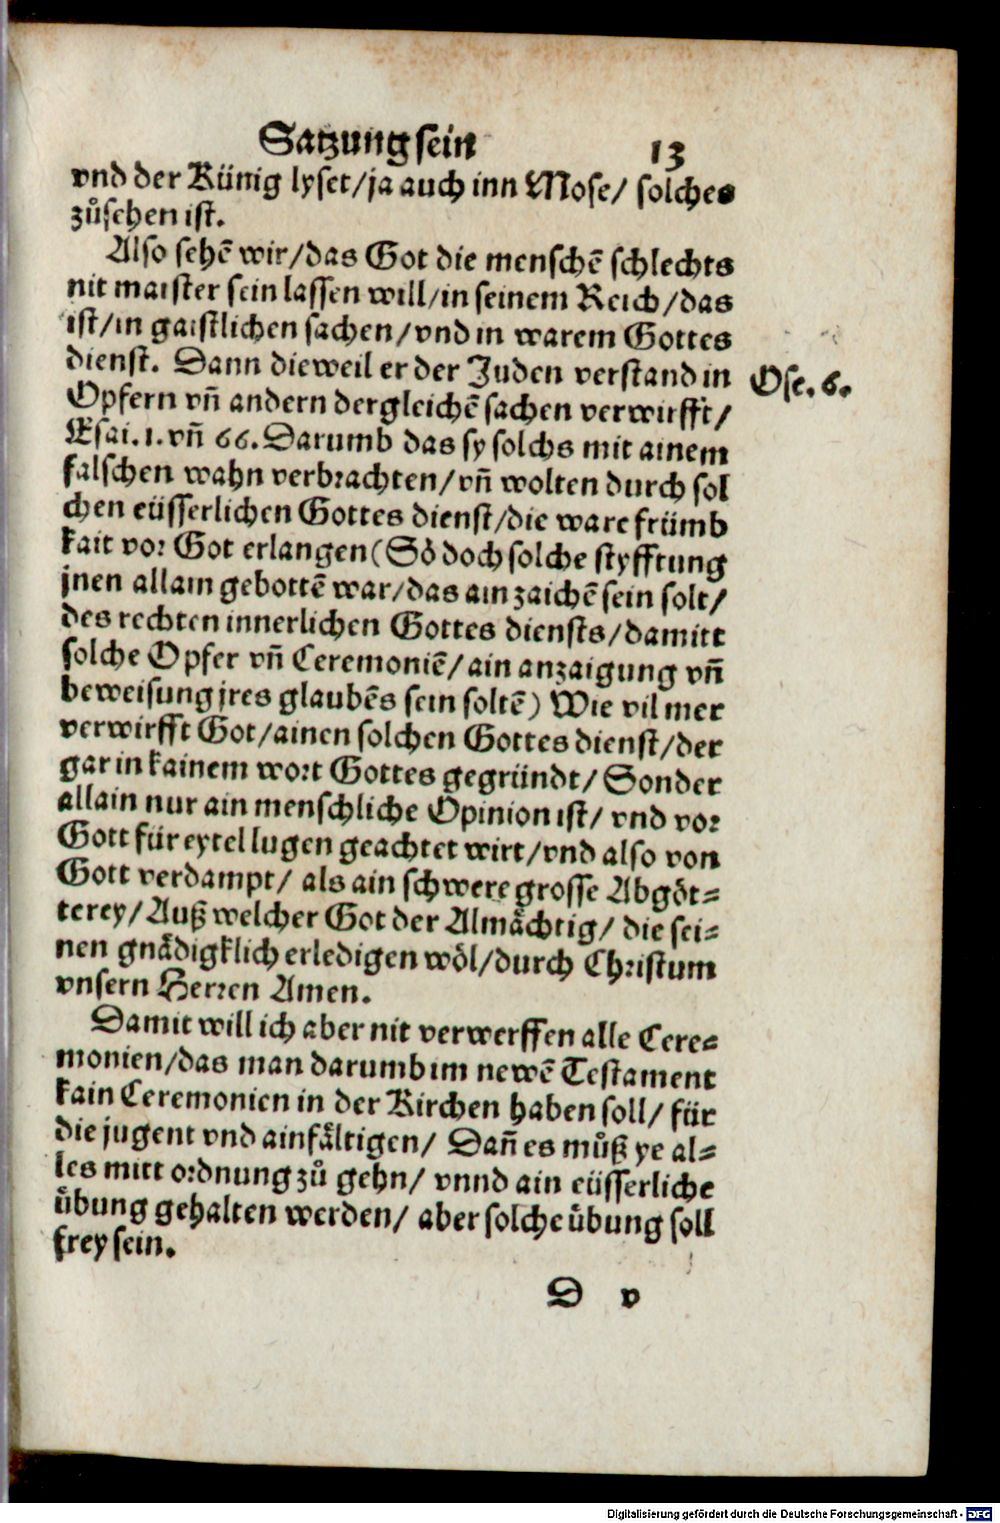 Satzung sein 13
vnd der Künig lyset/ja auch inn Mose/ solches
zůsehen ist.
Also sehē wir/das Got die menschē schlechts
nit maister sein lassen will/in seinem Reich/das
ist/in gaistlichen sachen/vnd in warem Gottes
dienst. Dann dieweil er der Juden verstand in
Ose. 6.
Opfern vñ andern dergleichē sachen verwirfft/
Esai. 1. vñ 66. Darumb das sy solchs mit ainem
falschen wahn verbrachten/vñ wolten durch sol
chen eüsserlichen Gottes dienst/die ware frümb
kait vor Got erlangen (Sö doch solche styfftung
jnen allain gebottē war/das ain zaichē sein solt/
des rechten innerlichen Gottes diensts/damitt
solche Opfer vñ Ceremoniē/ain anzaigung vñ
beweisung jres glaubēs sein soltē) Wie vil mer
verwirfft Got/ainen solchen Gottes dienst/der
gar in kainem wort Gottes gegründt/ Sonder
allain nur ain menschliche Opinion ist/ vnd vor
Gott für eytel lugen geachtet wirt/vnd also von
Gott verdampt/ als ain schwere grosse Abgöt-
terey/Auß welcher Got der Almächtig/ die sei-
nen gnädigklich erledigen wöl/durch Christum
vnsern Herren Amen.
Damit will ich aber nit verwerffen alle Cere-
monien/das man darumb im newē Testament
kain Ceremonien in der Kirchen haben soll/ für
die jugent vnd ainfältigen/ Dañ es můß ye al-
les mitt ordnung zů gehn/ vnnd ain eüsserliche
übung gehalten werden/ aber solche übung soll
frey sein.
D v
Digitalisierung gefördert durch die Deutsche Forschungsgemeinschaft - DFG